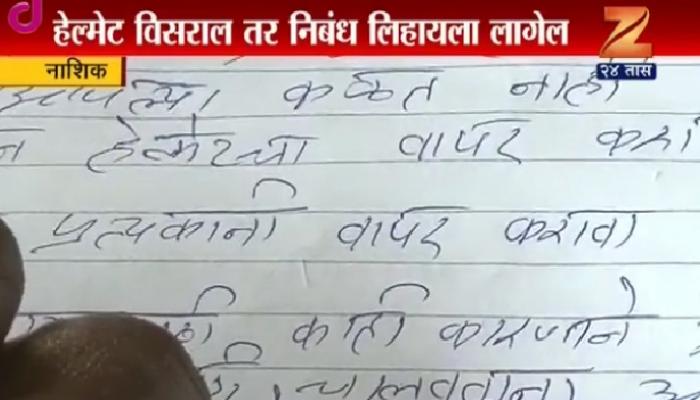 हेल्मेट विसराल तर निबंध लिहायला लागेल
नाशिक
२४ तास
कळत नाही
हेल्मेटचा वापर
प्रत्यकानी वापर करावा
काही कारणाने
चालवताना